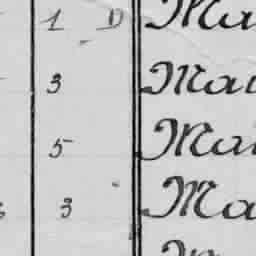 1 D Ma
3 Mai
5 Mai
3 Ma